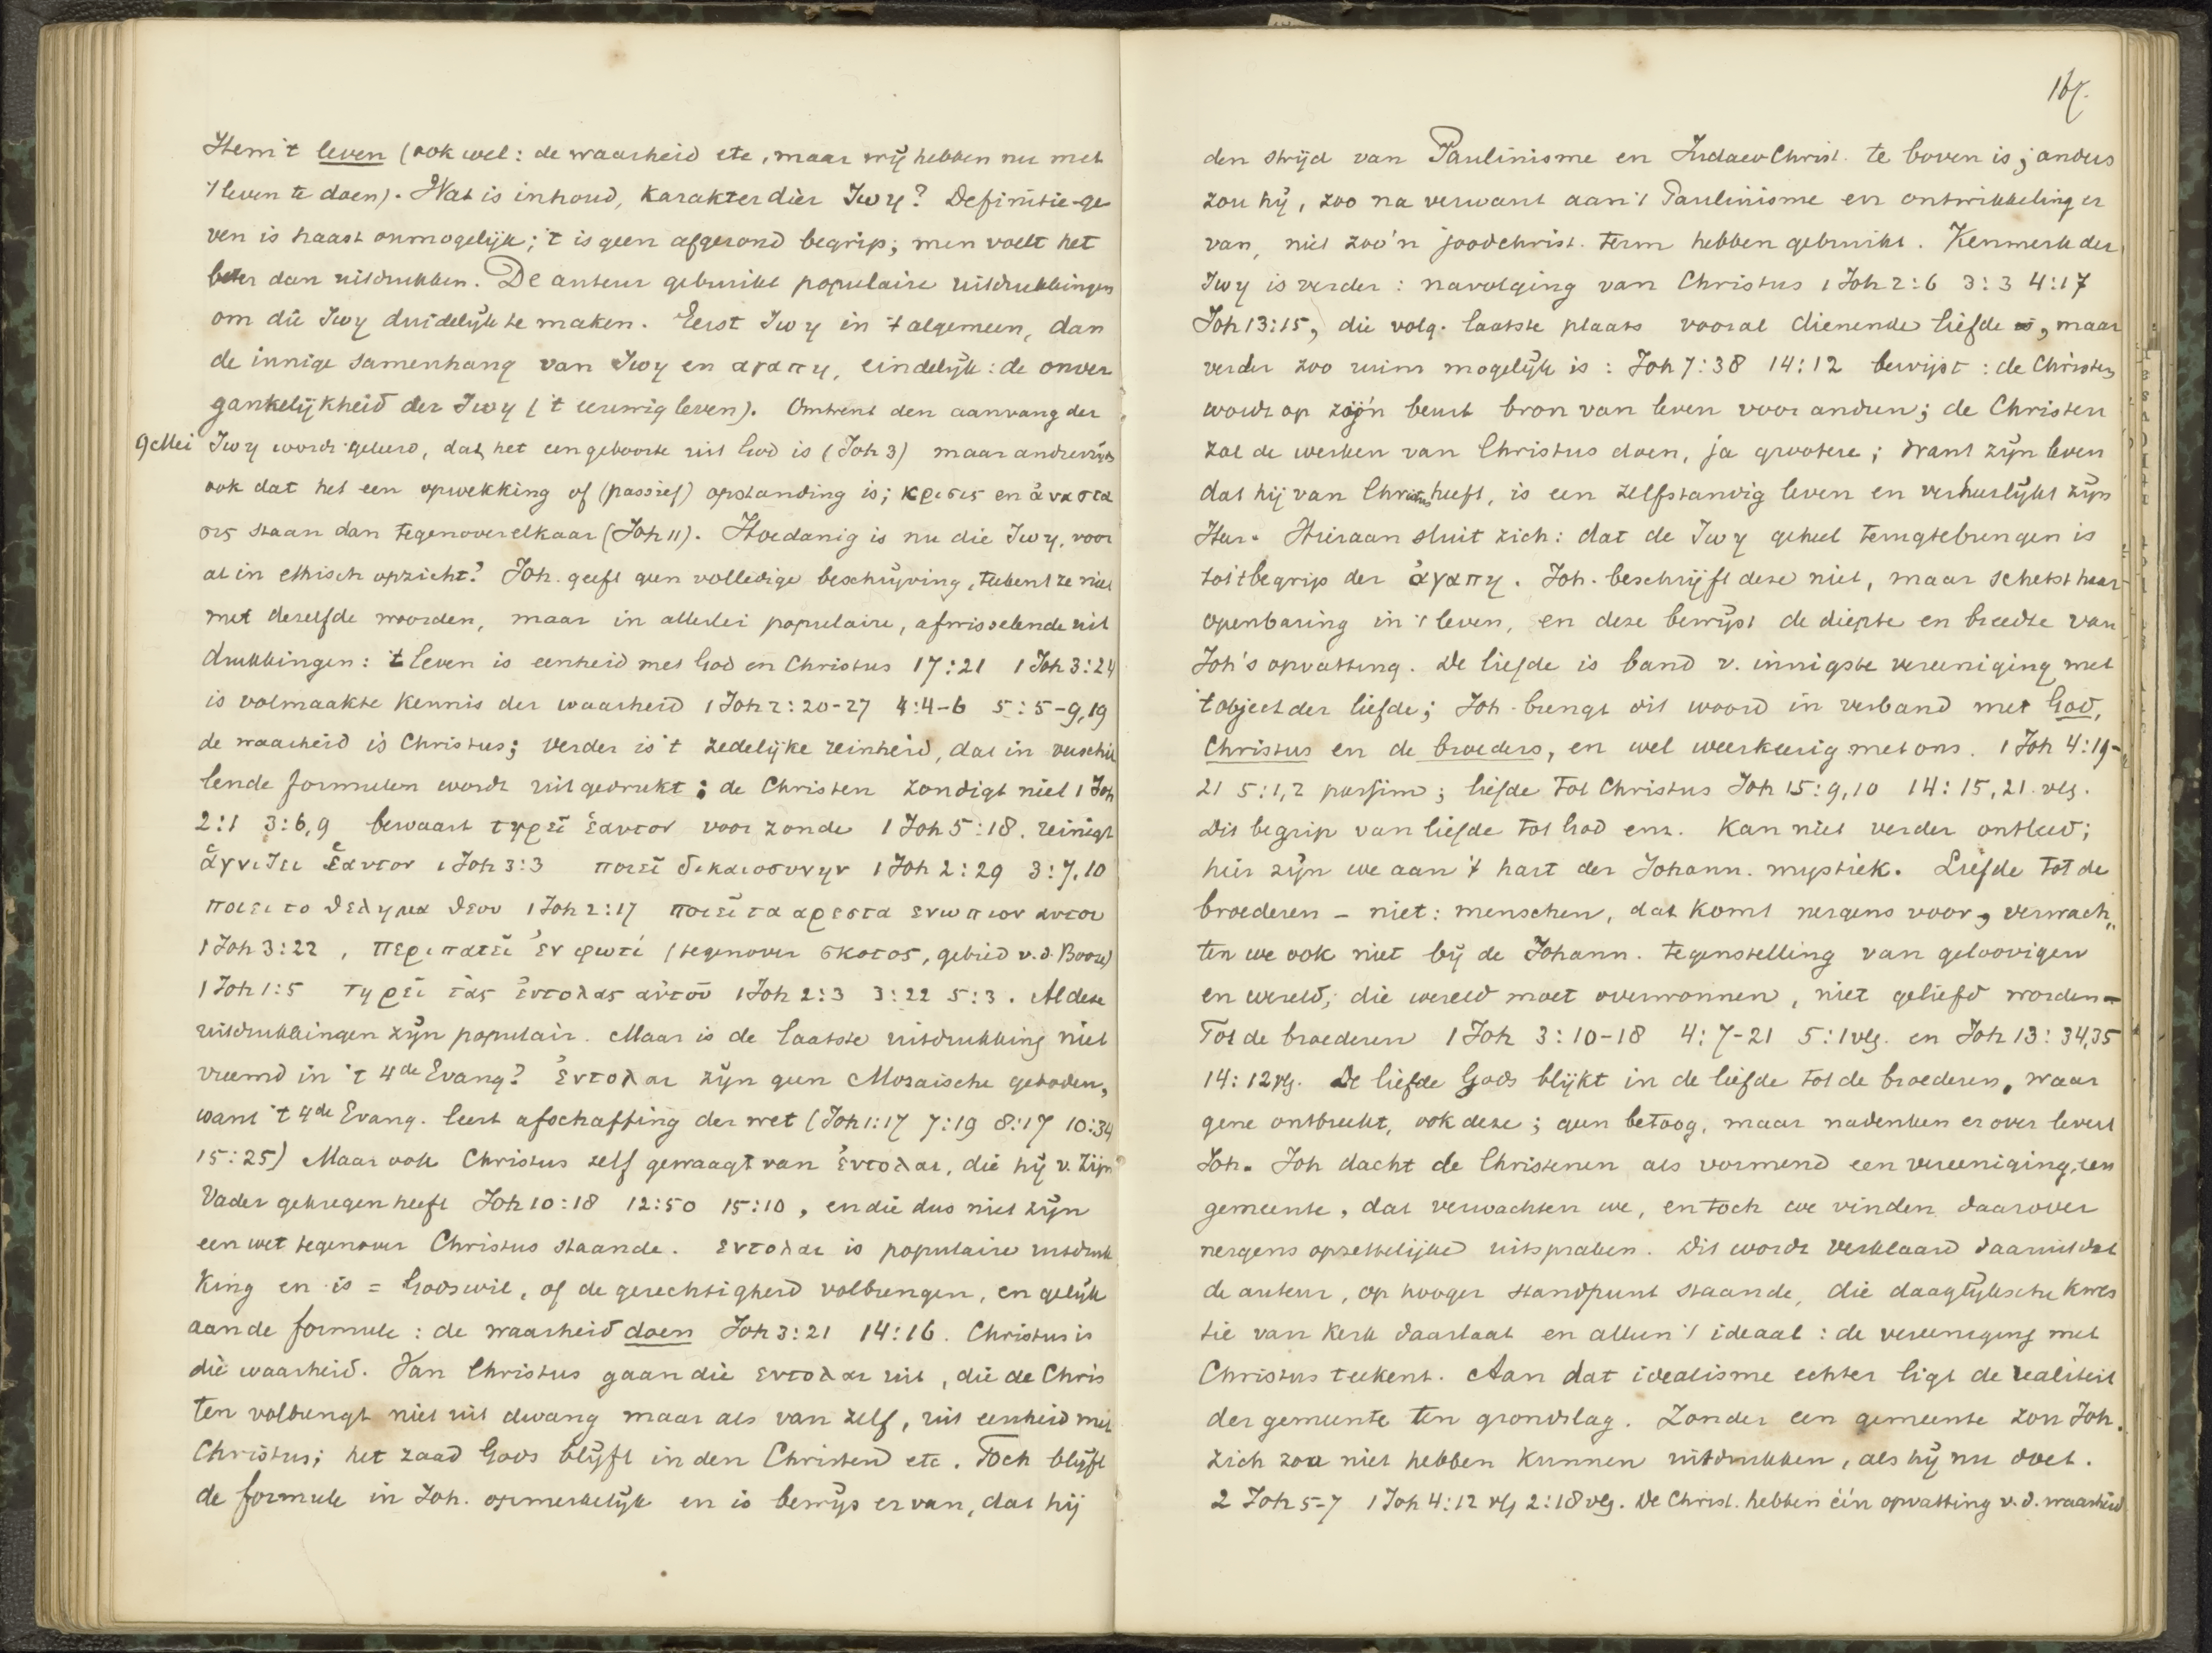 Hem 't leven (ook wel: de waarheid etc, maar wij hebben nu met
't leven te doen). Wat is inhoud, karakter dier ζωη? Definitie-ge
ven is haast onmogelijk; 't is geen afgerond begrip; men voelt het
beter dan uitdrukken. De auteur gebruikt populaire uitdrukkingen
om die ζωη duidelijk te maken. Eerst ζωη in 't algemeen, dan
de innige samenhang van ζωη en αγαπη, eindelijk: de onver
gankelijkheid der ζωη ('t eeuwig leven). Omtrent den aanvang der
9 Mei ζωη wordt geleerd, dat het een geboorte uit God is (Joh 3) maar anderzijds
ook dat het een opwekking of (passief) opstanding is; κρισις en ἀναστα
σις staan dan tegenover elkaar (Joh 11). Hoedanig is nu die ζωη, voor
al in ethisch opzicht? Joh. geeft geen volledige beschrijving, teekent ze niet
met dezelfde woorden, maar in allerlei populaire, afwisselende uit
drukkingen: 't leven is eenheid met God en Christus 17:21 1 Joh 3:24
is volmaakte kennis der waarheid 1 Joh 2:20-27 4:4-6 5:5-9,19
de waarheid is Christus; verder is 't zedelijke reinheid, dat in verschil
lende formulen wordt uitgedrukt; de Christen zondigt niet 1 Joh
2:1 3:6,9 bewaart τηρεῖ ἑαυτον voor zonde 1 Joh 5:18. reinigt
ἁγνιζει ἑαυτον 1 Joh 3:3 ποιεῖ δικαιοσυνην 1 Joh 2:29 3:7,10
ποιει το θελημα θεου 1 Joh 2:17 ποιεῖ τα αρεστα ενωπιον αυτου
1 Joh 3:22, περιπατεῖ ἐν φωτί (tegenover σκοτος, gebied v.d. Booze)
1 Joh 1:5 τηρεῖ τὰς ἐντολας αὐτοῦ 1 Joh 2:3 3:22 5:3. Al deze
uitdrukkingen zijn populair. Maar is de laatste uitdrukking niet
vreemd in 't 4de Evang? Ἐντολαι zijn geen Mozaische geboden,
want 't 4de Evang. leert afschaffing der wet (Joh 1:17 7:19 8:17 10:34
15:25) Maar ook Christus zelf gewaagt van ἐντολαι, die hij v. Zijn
Vader gekregen heeft Joh 10:18 12:50 15:10, en die dus niet zijn
een wet tegenover Christus staande. εντολαι is populaire uitdruk
king en is = Gods wil, of de gerechtigheid volbrengen, en gelijk
aan de formule: de waarheid doen Joh 3:21 14:16. Christus is
die waarheid. Van Christus gaan die εντολαι uit, die de Chris
ten volbrengt niet uit dwang maar als van zelf, uit eenheid met
Christus; het zaad Gods blijft in den Christen etc. Toch blijft
de formule in Joh. opmerkelijk en is bewijs ervan, dat hij
167.
den strijd van Paulinisme en Judaeo Christ. te boven is; anders
zou hij, zoo na verwant aan 't Paulinisme en ontwikkeling er
van, niet zoo'n joodchrist. term hebben gebruikt. Kenmerk der
ζωη is verder: navolging van Christus 1 Joh 2:6 3:3 4:17
Joh 13:15, die volg. laatste plaats vooral dienende liefde is, maar
verder zoo ruim mogelijk is: Joh 7:38 14:12 bewijst: de Christen
wordt op zijn beurt bron van leven voor anderen; de Christen
zal de werken van Christus doen, ja grootere; want zijn leven
dat hij van Christus heeft, is een zelfstandig leven en verheerlijkt zijn
Heer. Hieraan sluit zich: dat de ζωη geheel terugtebrengen is
tot 't begrip der ἀγαπη. Joh. beschrijft deze niet, maar schetst haar
openbaring in 't leven, en deze bewijst de diepte en breedte van
Joh's opvatting. De liefde is band v. innigste vereeniging met
't object der liefde; Joh. brengt dit woord in verband met God,
Christus en de broeders, en wel weerkeerig met ons. 1 Joh 4:19-
21 5:1,2 passim; liefde tot Christus Joh 15:9,10 14:15,21 vlg.
Dit begrip van liefde tot God enz. kan niet verder ontleed;
hier zijn we aan 't hart der Johann. mystiek. Liefde tot de
broederen - niet: menschen, dat komt nergens voor, verwach„
ten we ook niet bij de Johann. tegenstelling van geloovigen
en wereld; die wereld moet overwonnen, niet geliefd worden-
Tot de broederen 1 Joh 3:10-18 4:7-21 5:1 vlg. en Joh 13:34,35
14:12 vlg. De liefde Gods blijkt in de liefde tot de broederen, waar
gene ontbreekt, ook deze; geen betoog, maar nadenken er over levert
Joh. Joh dacht de Christenen als vormend een vereeniging, een
gemeente, dat verwachten we, en toch we vinden daarover
nergens opzettelijke uitspraken. Dit wordt verklaard daaruit dat
de auteur, op hooger standpunt staande, die daaglijksche kwes
tie van kerk daarlaat en alleen 't ideaal: de vereeniging met
Christus teekent. Aan dat idealisme echter ligt de realiteit
der gemeente ten grondslag. Zonder een gemeente zou Joh.
zich zoo niet hebben kunnen uitdrukken, als hij nu doet.
2 Joh 5-7 1 Joh 4:12 vlg 2:18 vlg. De Christ. hebben één opvatting v.d. waarheid